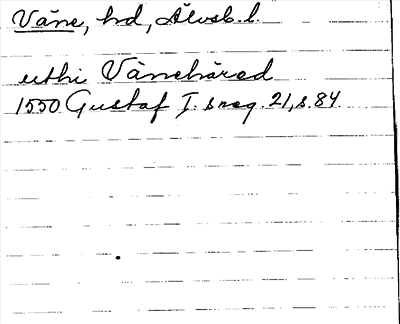 Väne, hd, Älvsb. l.
uthi Vänehäred
1550 Gustaf I. s reg. 21, s. 84